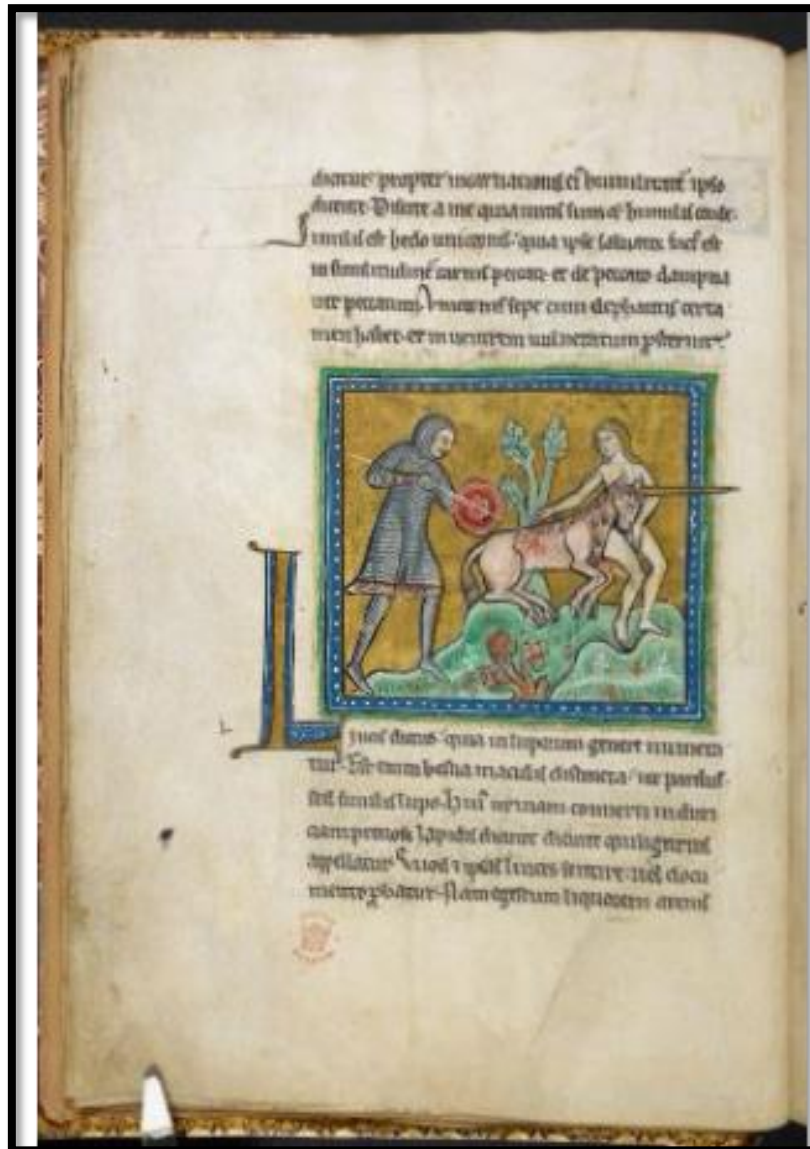 dicitur propter incarnationis ei humilitatē ipso
dicente. Discite a me quia mitis sum et humilis corde.
Similis est hedo unicornis. quia ipse salvator fact est
in similitudinē carnis peccati. et de peccato dampna
vit peccatum. Unicornis sepe cum elephantis certa
men habet. et in ventrem vulneratum ꝓsternit.
Lincis dictus quia in luporum genere numera
tur. Est enim bestia maculis distincta ut pardus
sed similis lupo. Huiꝰ urinam converti in duri
ciam preciosi lapidis dicunt qui ligurius
appellatur. Quod ipsas linces sentire. hoc docu
mento ꝓbatur. Nam egestum liquorem arenis